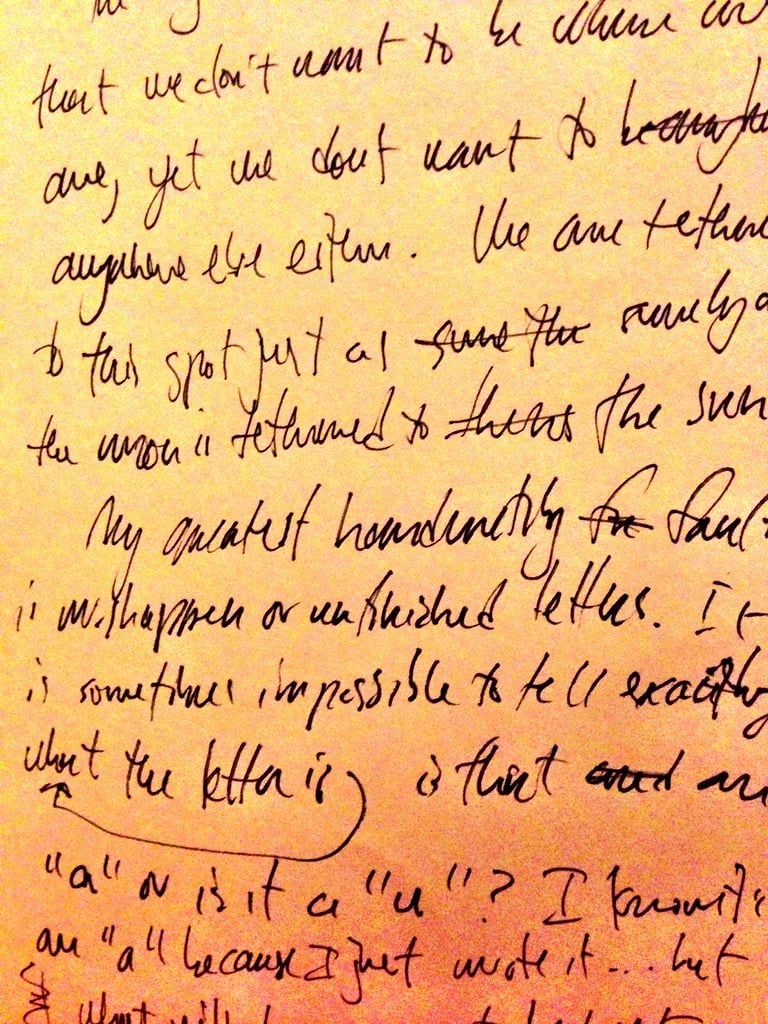 that we don't want to be where we
are, yet we dont want to
anywhere else either. We are tethere
to this spot just as same the surely a
the moon is tethered to the sun
My greatest handwriting faul
is mishappen or unfinished letters. It
is sometimes impossible to tell exactly
what the letter is is that and an
"a" or is it a "u"? I know it
an "a" because I just wrote it... but
what will